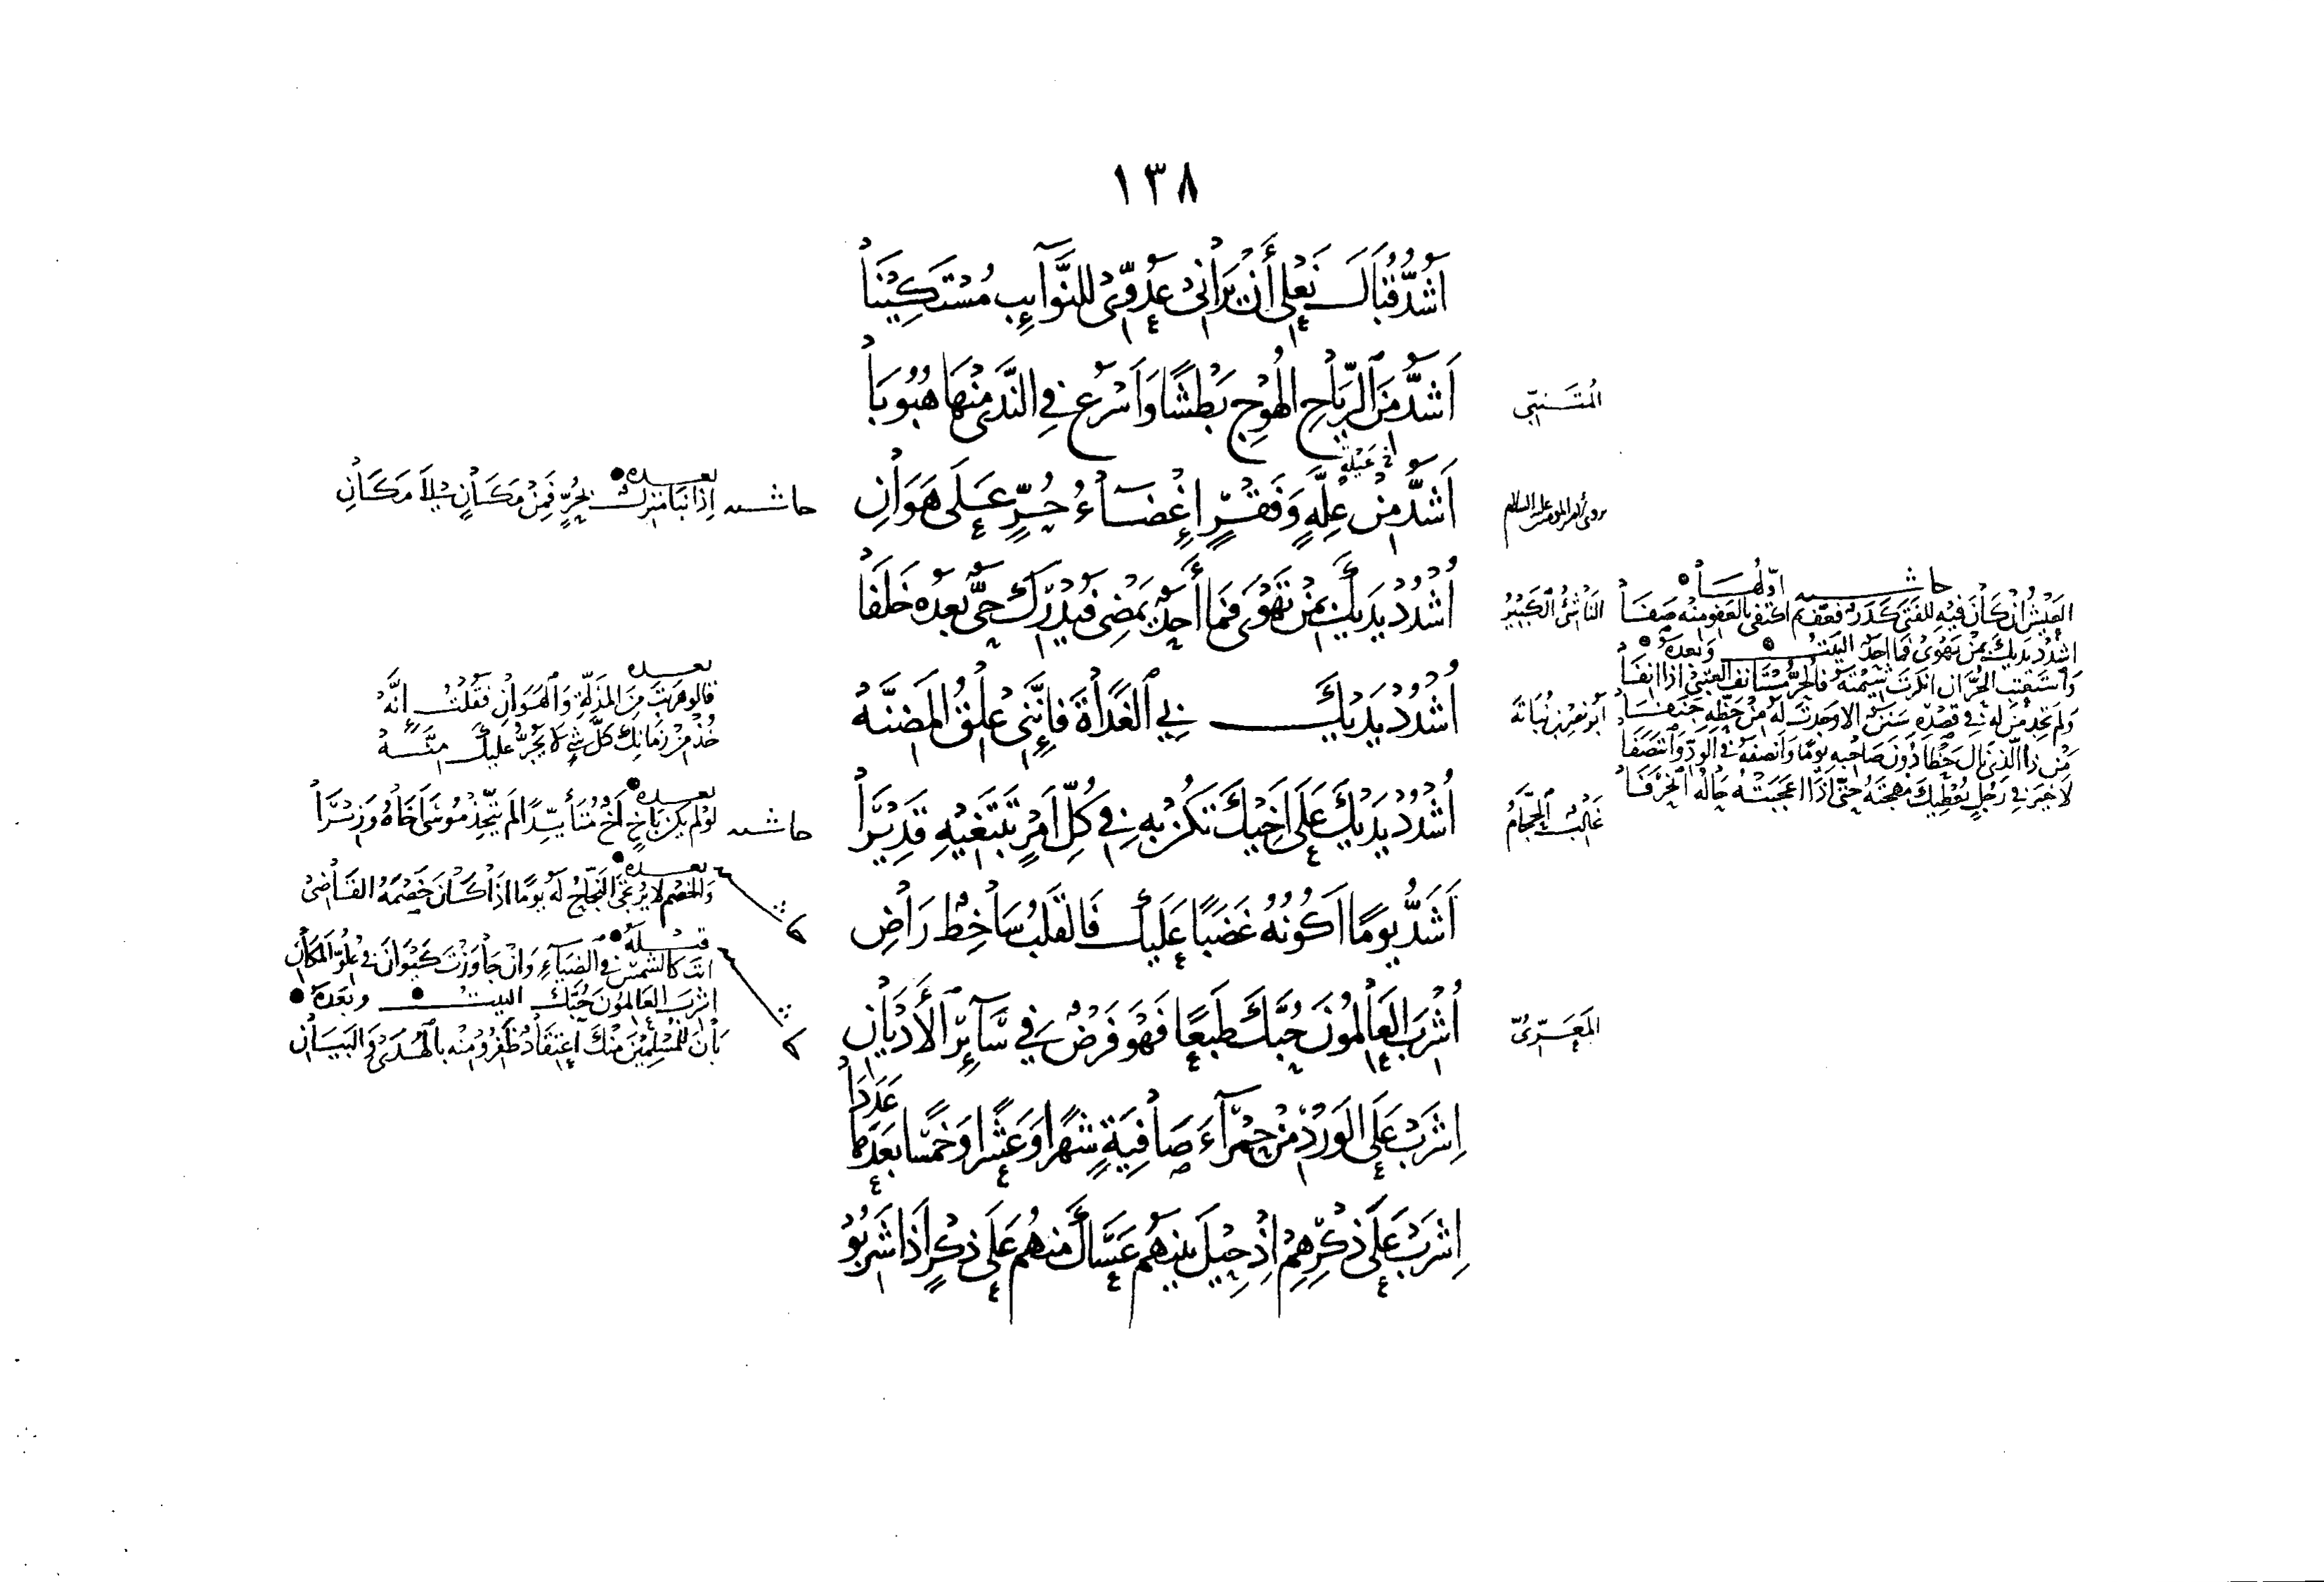 ١٣٨
أَشُدُّ قُبَالَ نَعْلِي أَنْ يَرَانِي عَدُوِّي لِلنَّوَائِبِ مُسْتَكِينَا
المُتَنبِّي
أَشَدُّ مِنَ الرِّيَاحِ الهُوجِ بَطْشًا وَأَسْرَعُ فِي النَّدَى مِنْهَا هُبُوبَا
أَشَدُّ مِنْ عِلَّةٍ وَفَقْرٍ إِغْضَاءُ حُرٍّ عَلَى هَوَانِ
حاشية
بعده
إِذَا نَبَا مَنْزِلٌ بِحُرٍّ فَمِنْ مَكَانٍ إِلَى مَكَانِ
النَّاشِئُ الكَبِيرُ
اُشْدُدْ يَدَيْكَ بِمَنْ تَهْوَى فَمَا أَحَدٌ يَمْضِي فَيُدْرِكَ حَيٌّ بَعْدَهُ خَلَفَا
حاشية أوّلها
العَيْشُ إِنْ كَانَ فِيهِ لِلْفَتَى كَدَرٌ فَعَفَّ ثم اكتفى بالعَفْوِ مِنْهُ صَفَا
اُشْدُدْ يَدَيْكَ بِمَنْ تَهْوَى فَمَا أَحَدٌ البيت وَبعده
وَاسْتَعْتِبِ الحُرَّ إن أنكرتَ شيمَتَهُ فَالحُرُّ مُسْتَأْنِفُ العُتْبَى إِذَا أَنِفَا
مَنْ ذَا الَّذِي نَالَ حَظًّا دُونَ صَاحِبِهِ يَوْمًا وَأَنْصَفَهُ فِي الوِدِّ وَانْتَصَفَا
لَا خَيْرَ فِي رَجُلٍ يُعْطِيكَ مُهْجَتَهُ حَتَّى إِذَا أَعْجَبَتْهُ حَالُهُ انْحَرَفَا
أبو نصر بن نُبَاتَة
اُشْدُدْ يَدَيْكَ بِي الغَدَاةَ فَإِنَّنِي عِلْقُ المَضِنَّهْ
بعده
قَالُوا هَرَبْتَ مِنَ المَذَلَّةِ وَالهَوَانِ فَقُلْتُ إِنَّهْ
خُذْ مِنْ زَمَانِكَ كُلَّ شَيْءٍ لَا يَجُرُّ عَلَيْكَ مِنَّهْ
غَالِبُ الحَجَّامُ
اُشْدُدْ يَدَيْكَ عَلَى أَخِيكَ تَكُنْ بِهِ فِي كُلِّ أَمْرٍ تَبْتَغِيهِ قَدِيرَا
حاشية
بعده
لَوْ لَمْ يَكُنْ بِأَخٍ أَخٌ مُتَأَيِّدًا لَمْ يَتَّخِذْ مُوسَى أَخَاهُ وَزِيرَا
أَشَدُّ يَوْمًا أَكُونُهُ غَضَبًا عَلَيْكَ فَالقَلْبُ سَاخِطٌ رَاضِ
بعده
وَالخَصْمُ لَا يُرْتَجَى النَّجَاحُ لَهُ يَوْمًا إِذَا كَانَ خَصْمَهُ القَاضِي
المَعَرِّيّ
أُشْرِبَ العَالَمُونَ حُبَّكَ طَبْعًا فَهْوَ فَرْضٌ فِي سَائِرِ الأَدْيَانِ
قبله
أنتَ كالشمسِ في الضِيَاءِ وَإِنْ جَاوَزْتَ كَيْوَانَ فِي عُلُوِّ المَكَانِ
أُشْرِبَ العَالَمُونَ حُبَّكَ البيت وبعده
بَانَ لِلْمُسْلِمِينَ مِنْكَ اعْتِقَادٌ ظَفِرُوا مِنْهُ بِالهُدَى وَالبَيَانِ
اِشْرَبْ عَلَى الوَرْدِ مِنْ حَمْرَاءَ صَافِيَةٍ شَهْرًا وَعَشْرًا وَخَمْسًا بَعْدَهَا عَدَدَا
اِشْرَبْ عَلَى ذِكْرِهِمْ إِذْ حِيلَ بَيْنَهُمُ عَسَاكَ مِنْهُمْ عَلَى ذِكْرٍ إِذَا شَرِبُوا